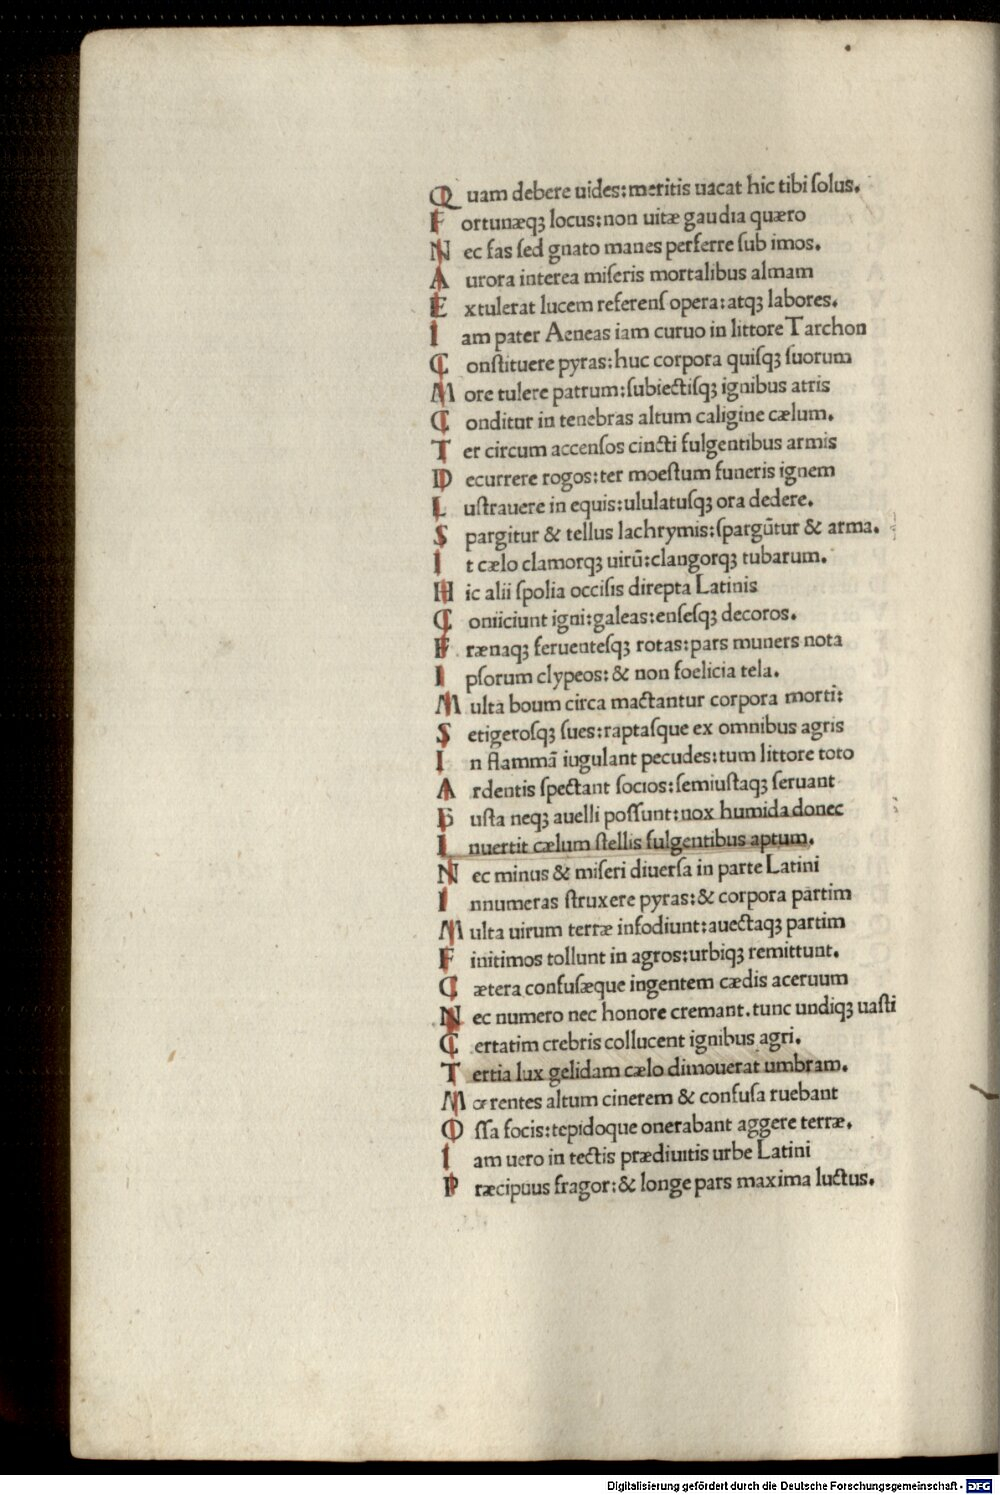 Quam debere uides:meritis uacat hic tibi ſolus.
Fortunæqꝫ locus:non uitæ gaudia quæro
Nec fas ſed gnato manes perferre ſub imos.
Aurora interea miſeris mortalibus almam
Extulerat lucem referenſ opera:atqꝫ labores.
Iam pater Aeneas iam curuo in littore Tarchon
Conſtituere pyras:huc corpora quiſqꝫ ſuorum
More tulere patrum:ſubiectiſqꝫ ignibus atris
Conditur in tenebras altum caligine cælum.
Ter circum accenſos cincti fulgentibus armis
Decurrere rogos:ter moeſtum funeris ignem
Luſtrauere in equis:ululatuſqꝫ ora dedere.
Spargitur & tellus lachrymis:ſpargūtur & arma.
It cælo clamorqꝫ uirū:clangorqꝫ tubarum.
Hic alii ſpolia occiſis direpta Latinis
Coniiciunt igni:galeas:enſeſqꝫ decoros.
Frænaqꝫ feruenteſqꝫ rotas:pars muners nota
Ipſorum clypeos:& non foelicia tela.
Multa boum circa mactantur corpora morti:
Setigeroſqꝫ ſues:raptaſque ex omnibus agris
In flammā iugulant pecudes:tum littore toto
Ardentis ſpectant ſocios:ſemiuſtaqꝫ ſeruant
Buſta neqꝫ auelli poſſunt:nox humida donec
Inuertit cælum ſtellis fulgentibus aptum.
Nec minus & miſeri diuerſa in parte Latini
Innumeras ſtruxere pyras:& corpora partim
Multa uirum terræ infodiunt:auectaqꝫ partim
Finitimos tollunt in agros:urbiqꝫ remittunt.
Cætera confuſæque ingentem cædis aceruum
Nec numero nec honore cremant.tunc undiqꝫ uaſti
Certatim crebris collucent ignibus agri.
Tertia lux gelidam cælo dimouerat umbram.
Mœrentes altum cinerem & confuſa ruebant
Oſſa focis:tepidoque onerabant aggere terræ.
Iam uero in tectis prædiuitis urbe Latini
Præcipuus fragor:& longe pars maxima luctus.
Digitalisierung gefördert durch die Deutsche Forschungsgemeinschaft - DFG